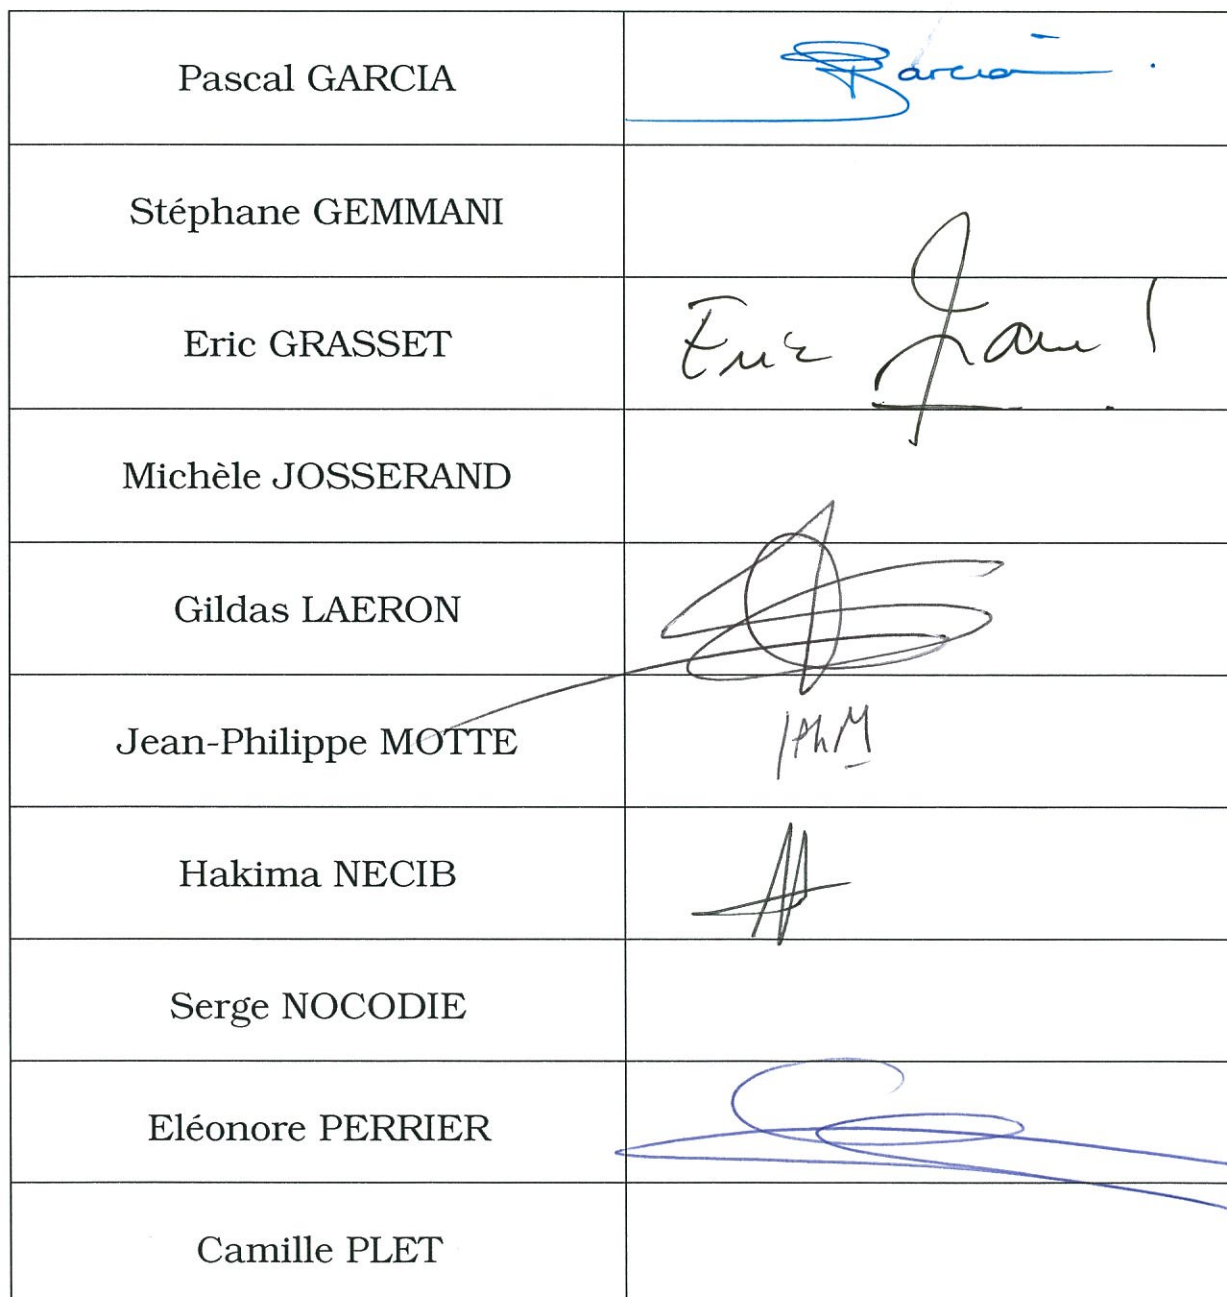 Pascal GARCIA
Garcia
Stéphane GEMMANI
Eric GRASSET
Eric
Michèle JOSSERAND
Gildas LAERON
Jean-Philippe MOTTE
JPhM
Hakima NECIB
Serge NOCODIE
Eléonore PERRIER
Camille PLET